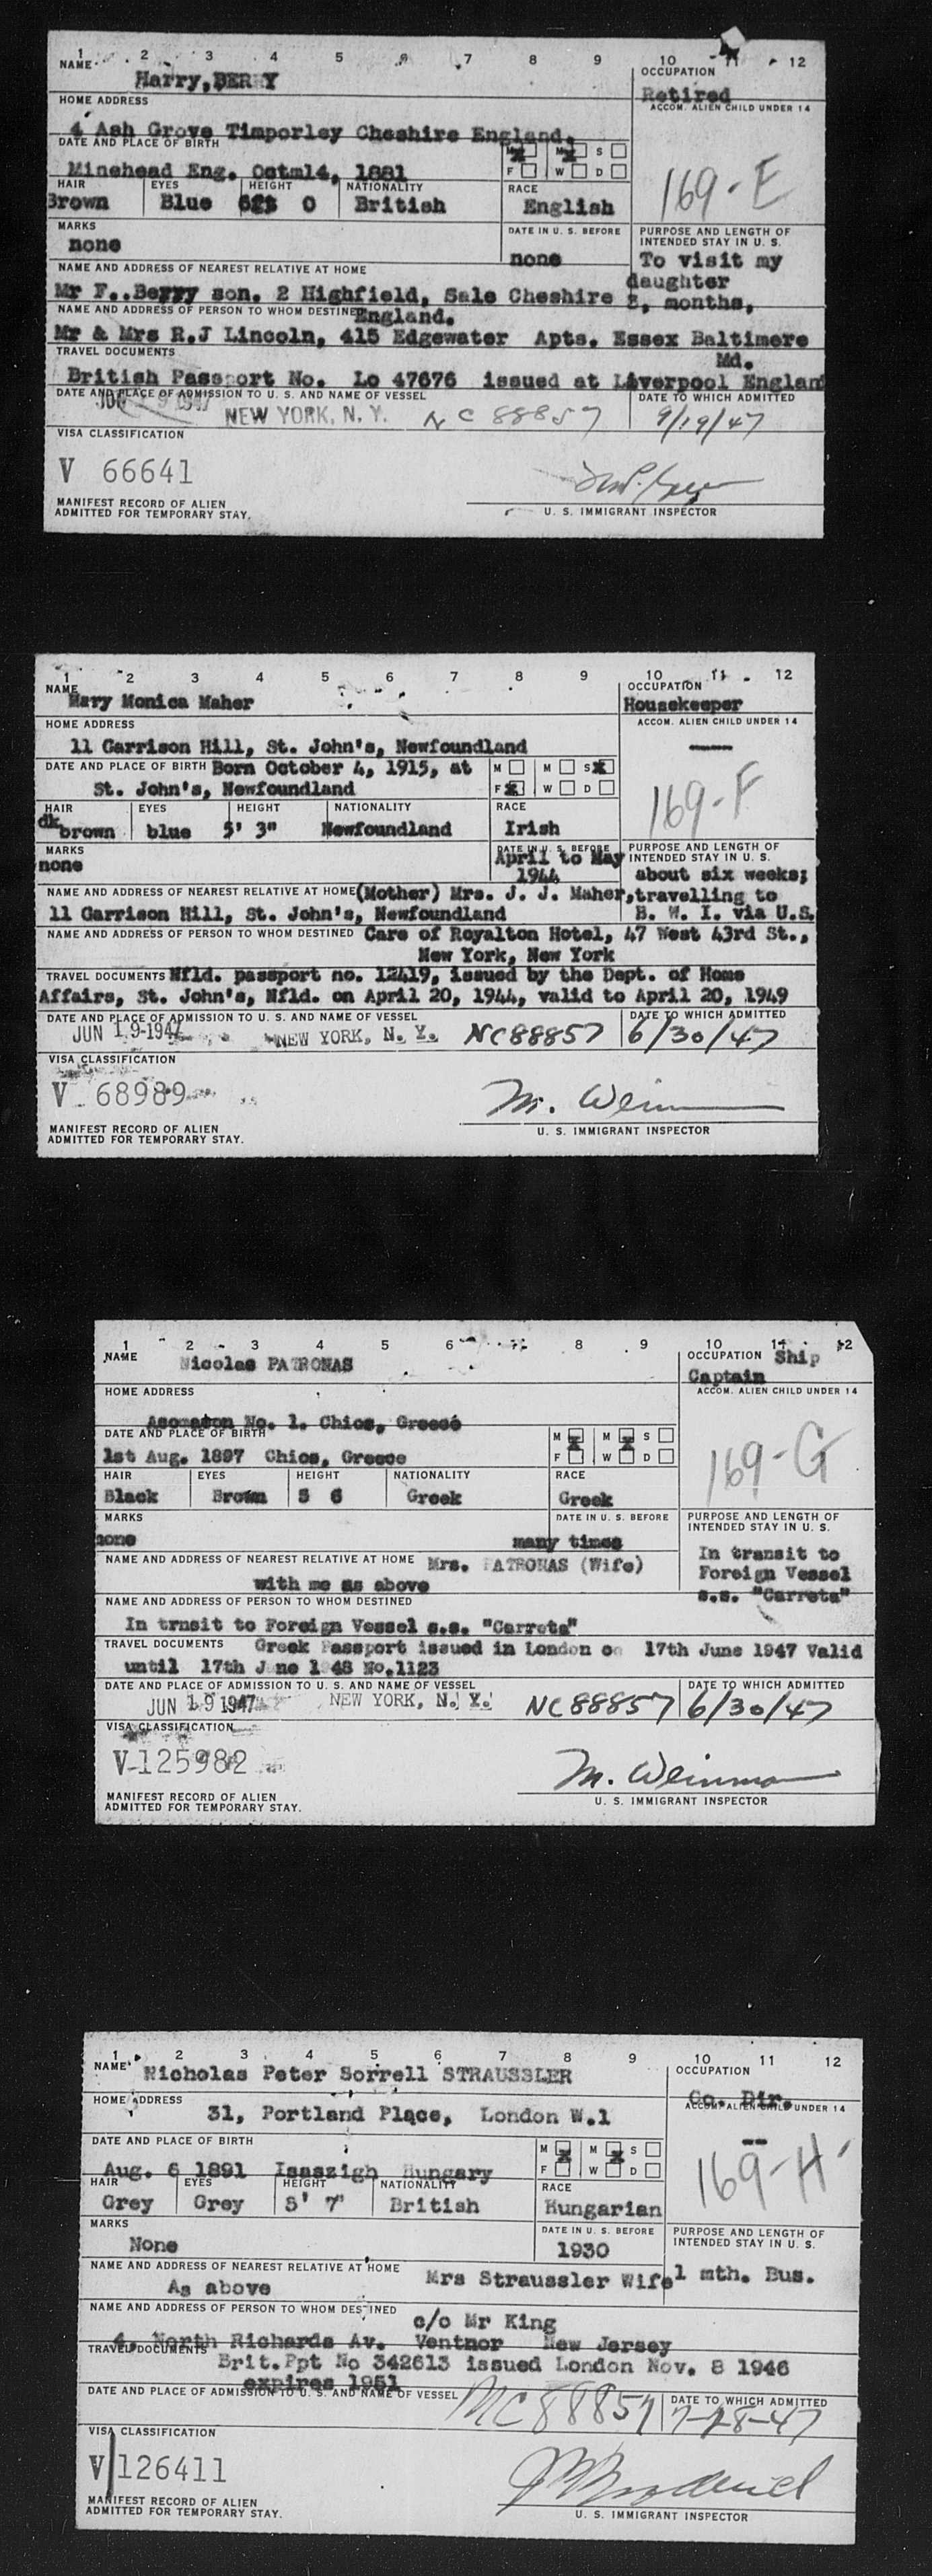 1 2 3 4 5 6 7 8 9 10 11 12
NAME
Harry, BERRY
OCCUPATION
Retired
HOME ADDRESS
ACCOM. ALIEN CHILD UNDER 14
4 Ash Grove Timporley Cheshire England.
DATE AND PLACE OF BIRTH
M M S
Minehead Eng. Octml4, 1881
F W D
169-E
HAIR EYES HEIGHT NATIONALITY RACE
Brown Blue 6ft 0 British English
MARKS
DATE IN U. S. BEFORE
PURPOSE AND LENGTH OF
INTENDED STAY IN U. S.
none
none
To visit my
daughter
NAME AND ADDRESS OF NEAREST RELATIVE AT HOME
Mr F..Berry son. 2 Highfield, Sale Cheshire
3, months,
England.
NAME AND ADDRESS OF PERSON TO WHOM DESTINED
Mr & Mrs R.J Lincoln, 415 Edgewater Apts. Essex Baltimere
Md.
TRAVEL DOCUMENTS
British Passport No. Lo 47676 issued at Liverpool Englan
DATE AND PLACE OF ADMISSION TO U. S. AND NAME OF VESSEL
DATE TO WHICH ADMITTED
JUN 19 1947 NEW YORK, N. Y. NC 88857 9/19/47
VISA CLASSIFICATION
V 66641
MANIFEST RECORD OF ALIEN
ADMITTED FOR TEMPORARY STAY.
U. S. IMMIGRANT INSPECTOR
1 2 3 4 5 6 7 8 9 10 11 12
NAME
Mary Monica Maher
OCCUPATION
Housekeeper
HOME ADDRESS
ACCOM. ALIEN CHILD UNDER 14
11 Garrison Hill, St. John's, Newfoundland
DATE AND PLACE OF BIRTH Born October 4, 1915, at
M M S
St. John's, Newfoundland
F W D
169-F
HAIR EYES HEIGHT NATIONALITY RACE
dk
brown blue 5' 3" Newfoundland Irish
MARKS
DATE IN U. S. BEFORE
PURPOSE AND LENGTH OF
INTENDED STAY IN U. S.
none
April to May
1944
about six weeks;
NAME AND ADDRESS OF NEAREST RELATIVE AT HOME (Mother) Mrs. J. J. Maher, travelling to
11 Garrison Hill, St. John's, Newfoundland B. W. I. via U.S.
NAME AND ADDRESS OF PERSON TO WHOM DESTINED Care of Royalton Hotel, 47 West 43rd St.,
New York, New York
TRAVEL DOCUMENTS Nfld. passport no. 12419, issued by the Dept. of Home
Affairs, St. John's, Nfld. on April 20, 1944, valid to April 20, 1949
DATE AND PLACE OF ADMISSION TO U. S. AND NAME OF VESSEL
DATE TO WHICH ADMITTED
JUN 19-1947 NEW YORK, N. Y. NC88857 6/30/47
VISA CLASSIFICATION
V 68989
M. Weinman
MANIFEST RECORD OF ALIEN
ADMITTED FOR TEMPORARY STAY.
U. S. IMMIGRANT INSPECTOR
1 2 3 4 5 6 8 9 10 11 12
NAME
Nicolas PATRONAS
OCCUPATION Ship
Captain
HOME ADDRESS
ACCOM. ALIEN CHILD UNDER 14
No. 1. Chios, Greece
DATE AND PLACE OF BIRTH
M M S
1st Aug. 1897 Chios, Greece
F W D
169-G
HAIR EYES HEIGHT NATIONALITY RACE
Black Brown 5 6 Greek Greek
MARKS
DATE IN U. S. BEFORE
PURPOSE AND LENGTH OF
INTENDED STAY IN U. S.
none
many times
In transit to
Foreign Vessel
s.s. "Carreta"
NAME AND ADDRESS OF NEAREST RELATIVE AT HOME Mrs. PATRONAS (Wife)
with me as above
NAME AND ADDRESS OF PERSON TO WHOM DESTINED
In trnsit to Foreign Vessel s.s. "Carreta"
TRAVEL DOCUMENTS Greek Passport issued in London on 17th June 1947 Valid
until 17th June 1948 No.1123
DATE AND PLACE OF ADMISSION TO U. S. AND NAME OF VESSEL
DATE TO WHICH ADMITTED
JUN 19 1947 NEW YORK, N. Y. NC88857 6/30/47
VISA CLASSIFICATION
V-125982
M. Weinman
MANIFEST RECORD OF ALIEN
ADMITTED FOR TEMPORARY STAY.
U. S. IMMIGRANT INSPECTOR
1 2 3 4 5 6 7 8 9 10 11 12
NAME
Nicholas Peter Sorrell STRAUSSLER
OCCUPATION
Co. Dir.
HOME ADDRESS
ACCOM. ALIEN CHILD UNDER 14
31, Portland Place, London W.1
DATE AND PLACE OF BIRTH
M M S
Aug. 6 1891 Isaszigh Hungary
F W D
169-H
HAIR EYES HEIGHT NATIONALITY RACE
Grey Grey 5' 7" British Hungarian
MARKS
DATE IN U. S. BEFORE
PURPOSE AND LENGTH OF
INTENDED STAY IN U. S.
None
1930
NAME AND ADDRESS OF NEAREST RELATIVE AT HOME
Mrs Straussler Wife 1 mth. Bus.
As above
NAME AND ADDRESS OF PERSON TO WHOM DESTINED
c/o Mr King
4, North Richards Av. Ventnor New Jersey
TRAVEL DOCUMENTS
Brit.Ppt No 342613 issued London Nov. 8 1946
expires 1951
DATE AND PLACE OF ADMISSION TO U. S. AND NAME OF VESSEL
DATE TO WHICH ADMITTED
NC88857 7-18-47
VISA CLASSIFICATION
V 126411
MANIFEST RECORD OF ALIEN
ADMITTED FOR TEMPORARY STAY.
U. S. IMMIGRANT INSPECTOR